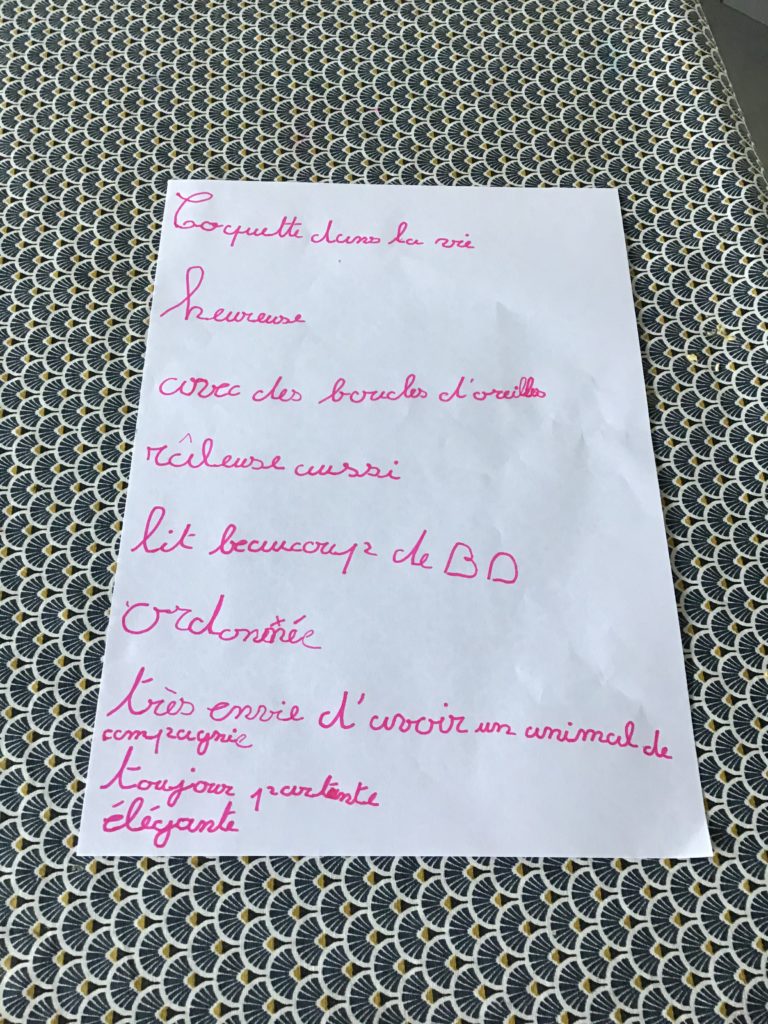 Coquette dans la vie
heureuse
avec des boucles d'oreilles
râleuse aussi
lit beaucoup de BD
ordonnée
très envie d'avoir un animal de
compagnie
toujour partante
élégante